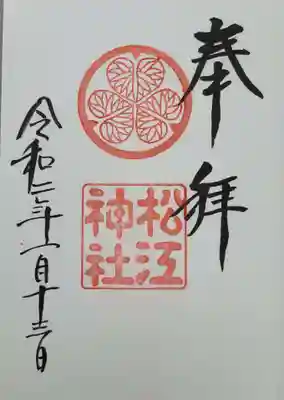 奉拝
松江神社
令和二年二月十三日